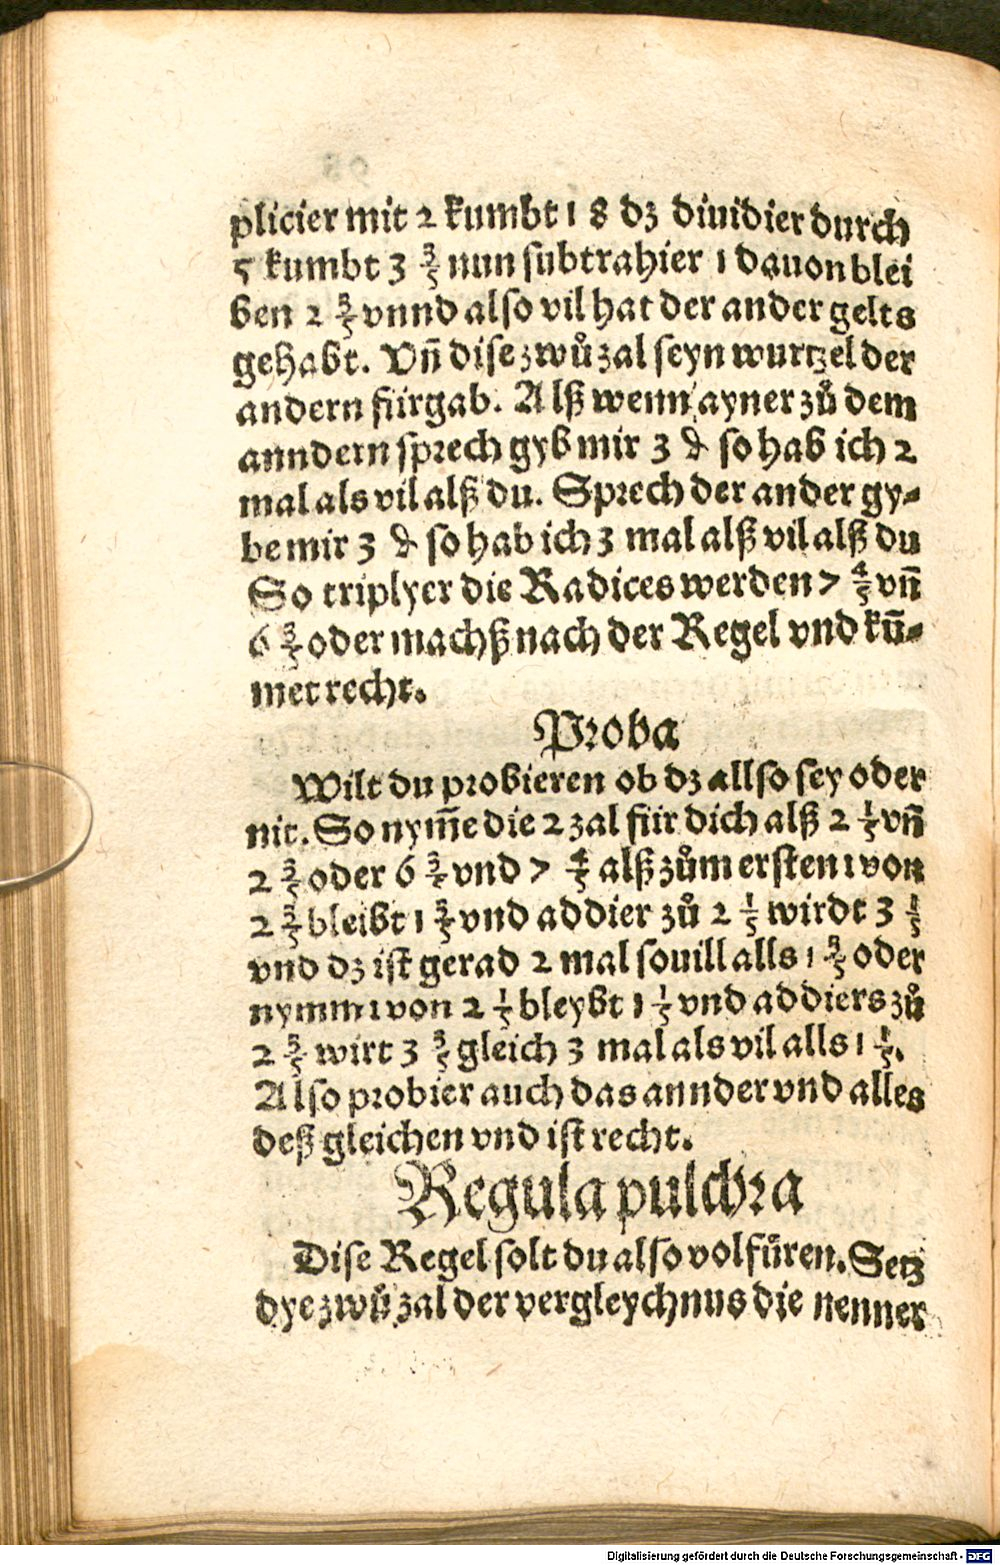 plicier mit 2 kumbt 1 8 dz diuidier durch
5 kumbt 3 3/5 nun subtrahier 1 dauon blei
ben 2 3/5 vnnd also vil hat der ander gelts
gehabt. Vñ dise zwů zal seyn wurtzel der
andern fürgab. Alß wenn ayner zů dem
anndern sprech gyb mir 3 ₰ so hab ich 2
mal als vil alß du. Sprech der ander gy⸗
be mir 3 ₰ so hab ich 3 mal alß vil alß du
So triplyer die Radices werden 7 4/5 vñ
6 3/5 oder machß nach der Regel vnd kũ⸗
met recht.
Proba
Wilt du probieren ob dz allso sey oder
nit. So nym̃e die 2 zal für dich alß 2 1/5 vñ
2 3/5 oder 6 3/5 vnd 7 4/5 alß zům ersten 1 von
2 3/5 bleibt 1 3/5 vnd addier zů 2 1/5 wirdt 3 1/5
vnd dz ist gerad 2 mal souill alls 1 3/5 oder
nymm 1 von 2 1/5 bleybt 1 1/5 vnd addiers zů
2 3/5 wirt 3 3/5 gleich 3 mal als vil alls 1 1/5.
Also probier auch das annder vnd alles
deß gleichen vnd ist recht.
Regula pulchra
Dise Regel solt du also volfüren. Setz
dye zwů zal der vergleychnus die nenner
Digitalisierung gefördert durch die Deutsche Forschungsgemeinschaft - DFG